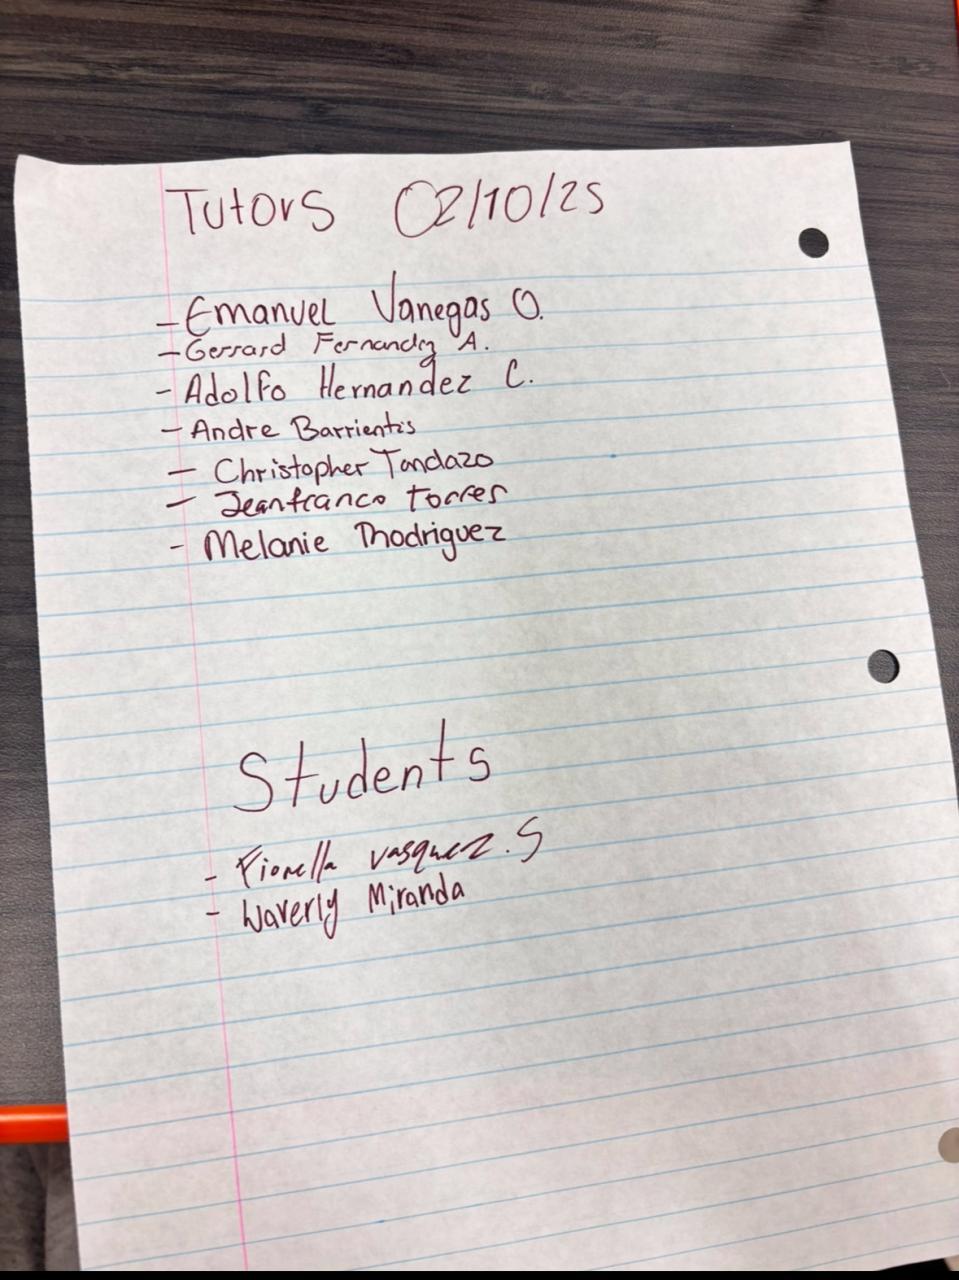 Tutors 02/10/25
- Emanuel Vanegas O.
- Gerrard Fernandez A.
- Adolfo Hernandez C.
- Andre Barrientos
- Christopher Tandazo
- Jeanfranco Torres
- Melanie Rhodriguez
Students
- Fiorella vasquez. S
- Waverly Miranda